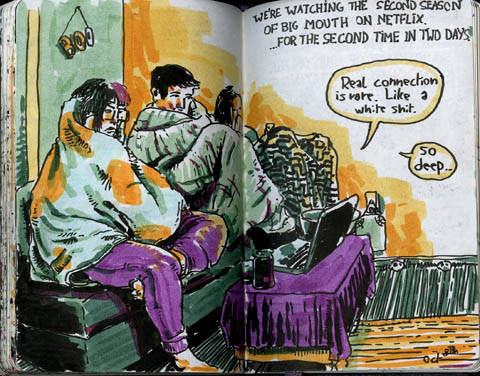 WE'RE WATCHING THE SECOND SEASON
OF BIG MOUTH ON NETFLIX.
...FOR THE SECOND TIME IN TWO DAYS
Real connection
is rare. Like a
white shit.
SO
deep...